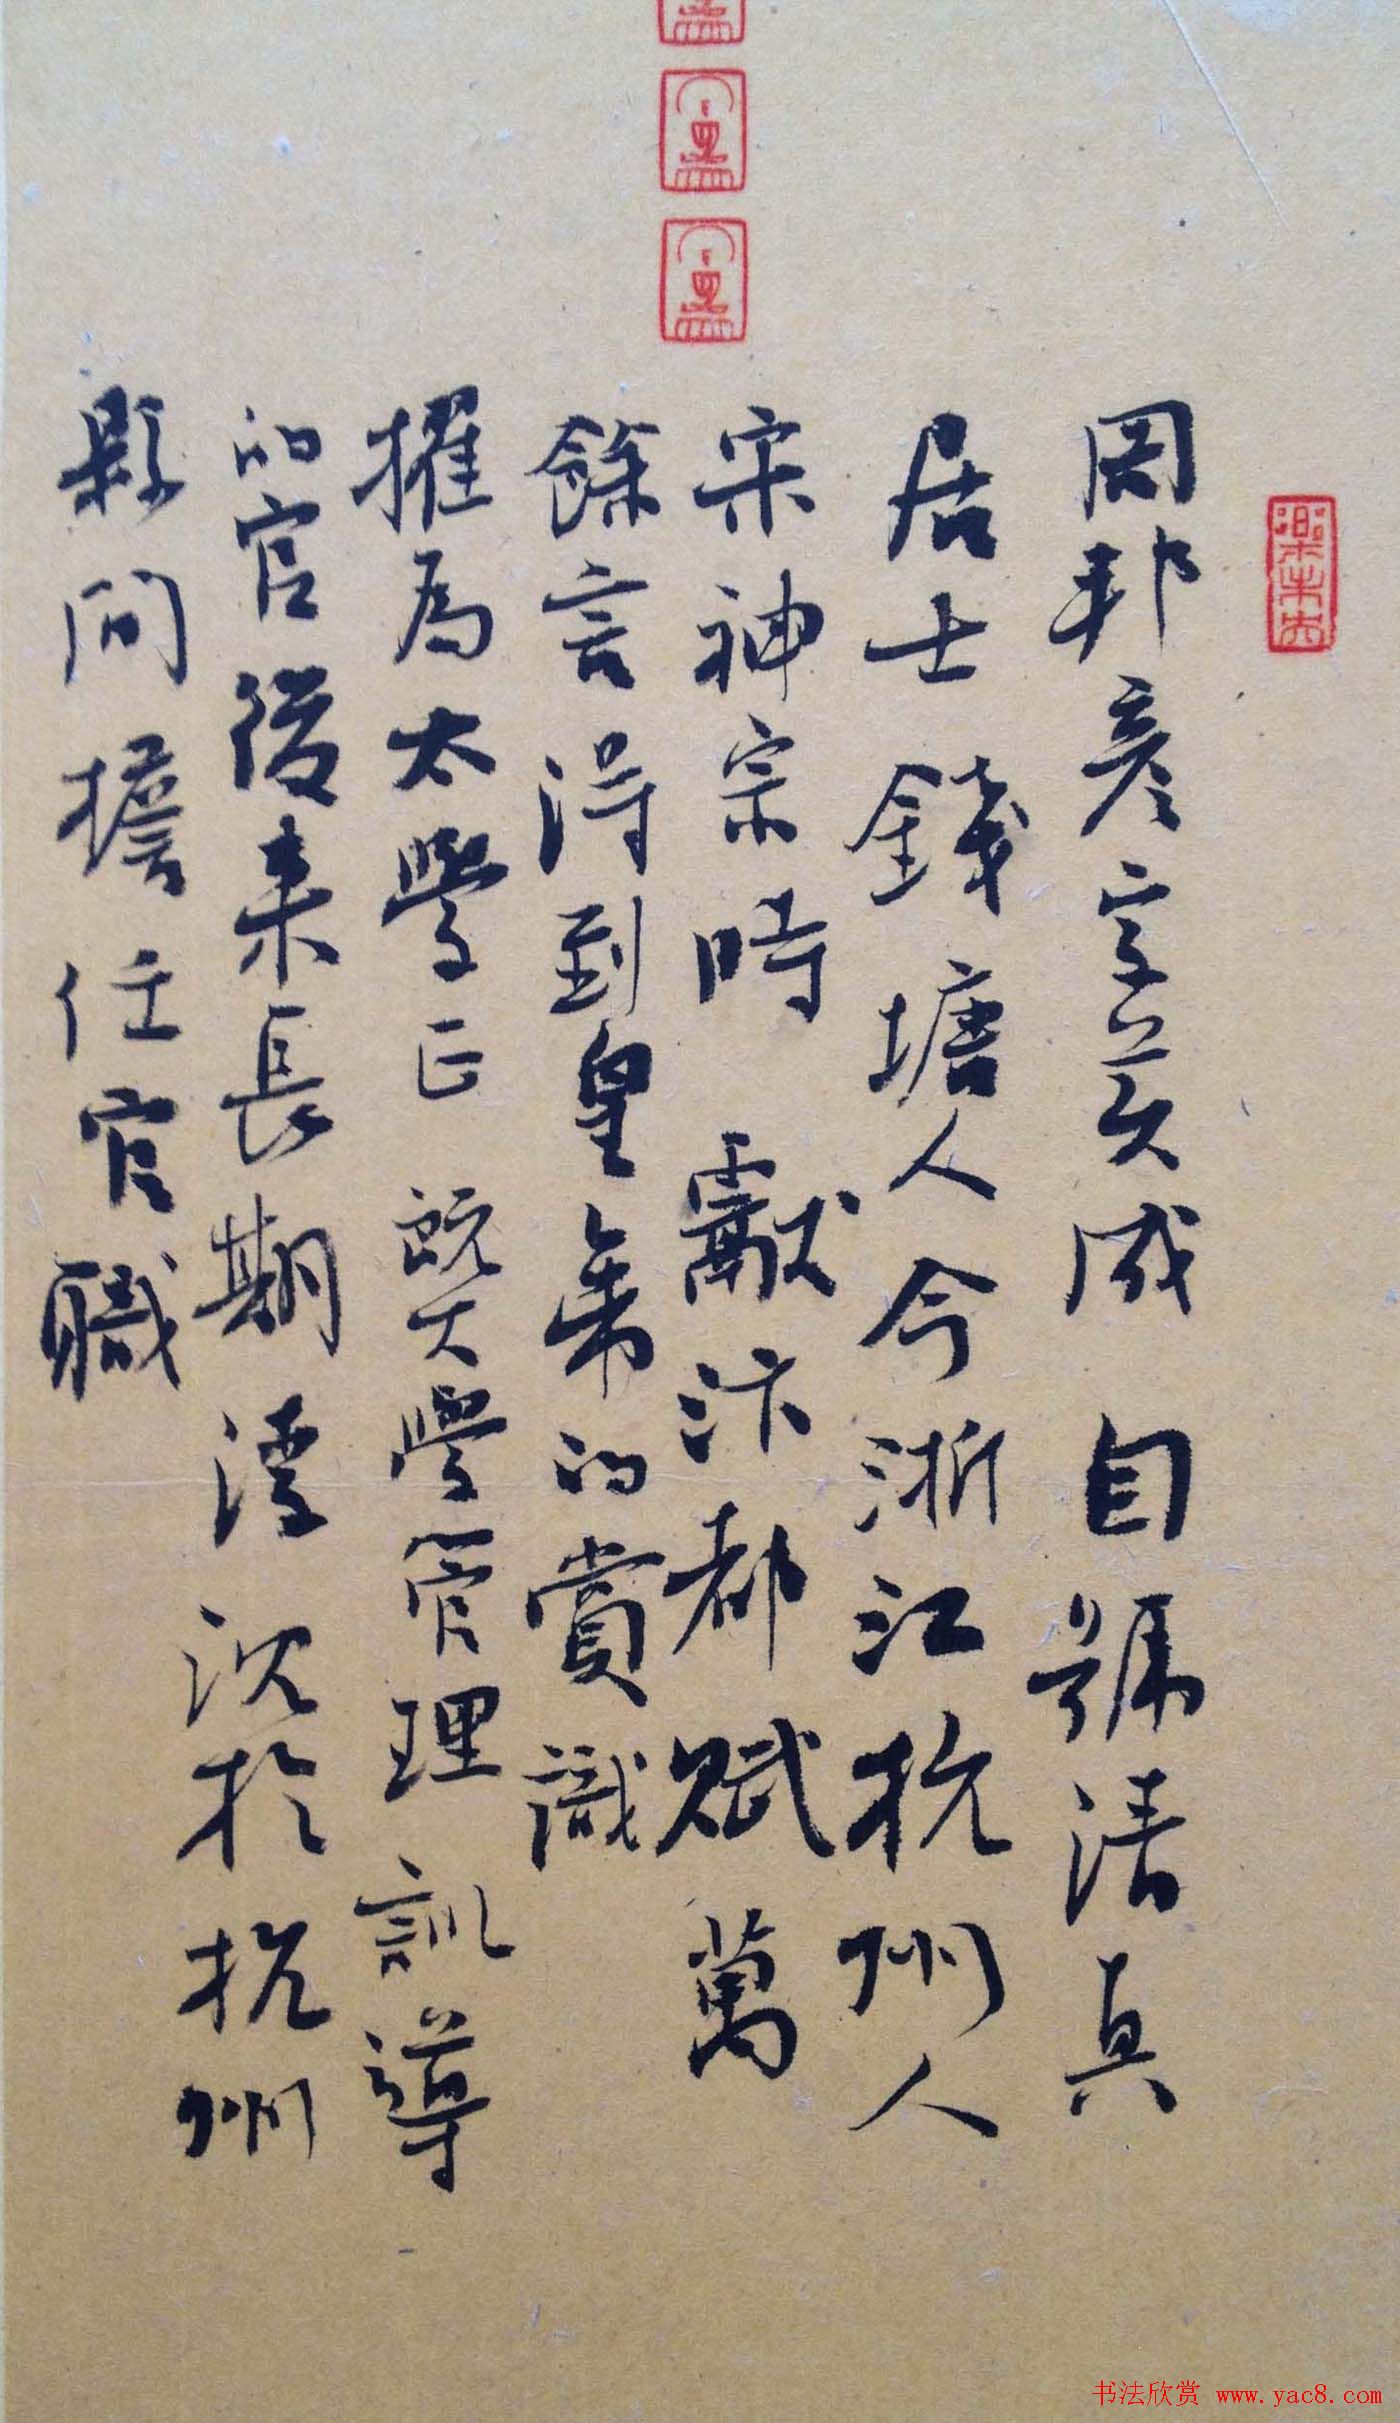 周邦彦字美成自號清真
居士錢塘人今浙江杭州人
宋神宗時獻汴都賦萬
餘言得到皇帝的賞識
擢為太學正既大學管理訓導
的官後来長期浮沉於杭州
縣間擔任官職
书法欣赏 www.yac8.com